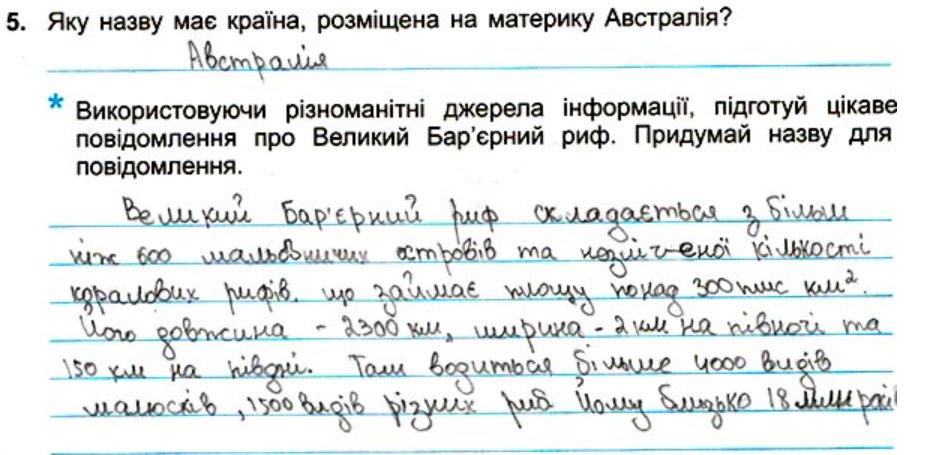 5. Яку назву має країна, розміщена на материку Австралія?
Австралія
* Використовуючи різноманітні джерела інформації, підготуй цікаве
повідомлення про Великий Бар’єрний риф. Придумай назву для
повідомлення.
Великий Бар'єрний риф складається з більш
ніж 600 мальовничих островів та незліченої кількості
коралових рифів, що займає площу понад 300 тис км².
Його довжина - 2300 км, ширина - 2 км на півночі та
150 км на півдні. Там водиться більше 4000 видів
малюсків, 1500 видів різних риб Йому близько 18 млн років